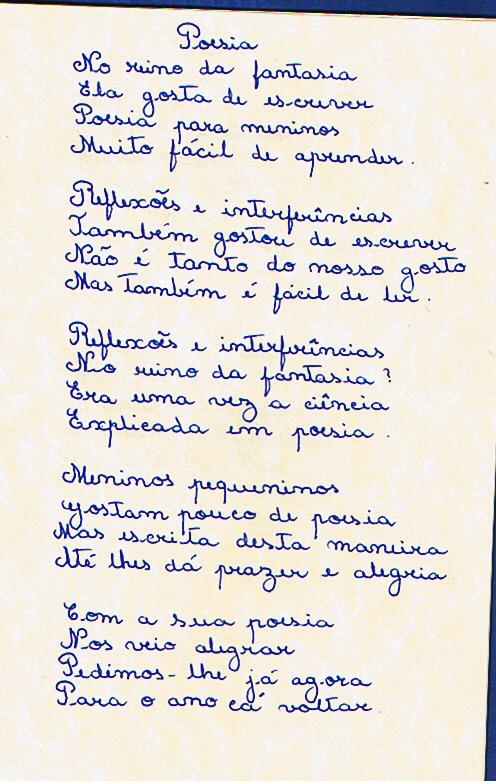 Poesia
No reino da fantasia
Ela gosta de escrever
Poesia para meninos
Muito fácil de aprender.
Reflexões e interferências
Também gostou de escrever
Não é tanto do nosso gosto
Mas Também é fácil de ler.
Reflexões e interferências
No reino da fantasia?
Era uma vez a ciência
Explicada em poesia.
Meninos pequeninos
gostam pouco de poesia
Mas escrita desta maneira
Até lhes dá prazer e alegria
Com a sua poesia
Nos veio alegrar
Pedimos-lhe já agora
Para o ano cá voltar.